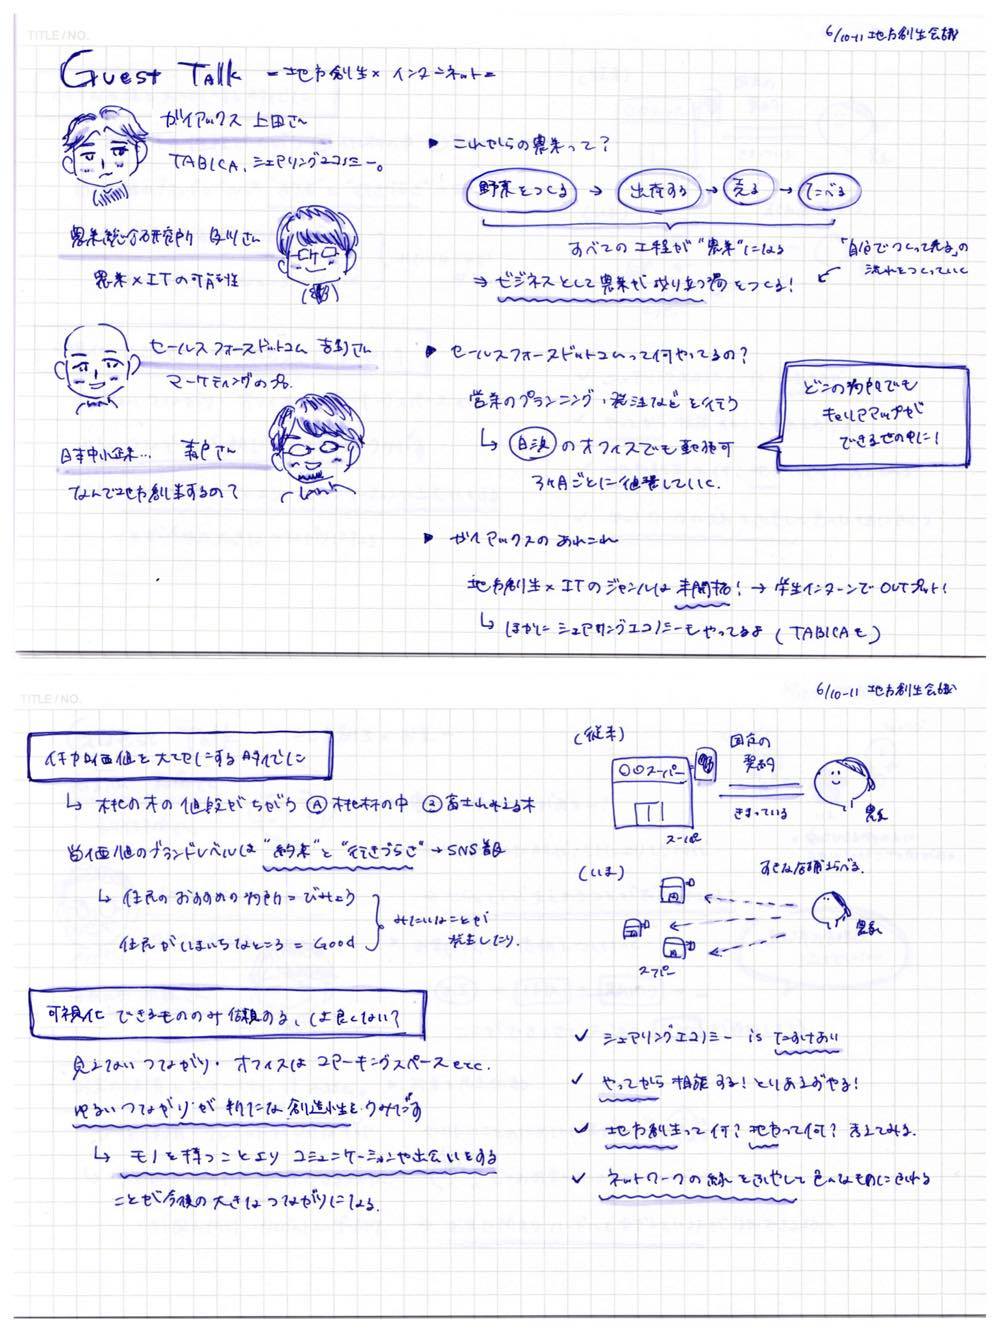 TITLE / NO.
6/10-11 地方創生会議
Guest Talk - 地方創生×インターネット -
ガイアックス 上田さん
TABICA、シェアリングエコノミー。
農業総合研究所 及川さん
農業×ITの可能性
セールスフォースドットコム 吉野さん
マーケティングのプロ
日本中小企業… さん
なんで地方創生するの?
▶ これからの農業って?
野菜をつくる → 出荷する → 売る → たべる
すべての工程が"農業"になる
「自分でつくって売る」の
流れをつくっていく
⇒ ビジネスとして農業が成り立つ場をつくる!
▶ セールスフォースドットコムって何やってるの?
営業のプランニング・発注などを行う
↳ 白浜 のオフィスでも勤務可
3ヶ月ごとに循環していく。
どこの場所でも
キャリアアップが
できる世の中に!
▶ ガイアックスのあれこれ
地方創生×ITのジャンルは未開拓! → 学生インターンでOUTプット!
↳ ほかにシェアリングエコノミーもやってるよ (TABICAも)
TITLE / NO.
6/10-11 地方創生会議
付加価値を大切にする時代に
↳ 桃の木の値段がちがう ① 桃林の中 ② 富士山みえる木
価値のブランドレベルは"約束"と"行きづらさ" → SNS普及
↳ 住民のおすすめの場所 = びみょう
住民がいまいちなところ = Good
みたいなことが
発生したり。
可視化できるもののみ信頼する、は良くない?
見えないつながり・オフィスはコワーキングスペースetc.
ゆるいつながりが新たな創造性をうみだす
↳ モノを持つことより コミュニケーションや出会いをする
ことが今後の大きなつながりになる。
(従来)
〇〇スーパー
スーパー
固定の
契約
きまっている
農家
(いま)
すきな店舗えらべる。
スーパー
農家
✓ シェアリングエコノミー is たすけあい
✓ やってから相談する! とりあえずやる!
✓ 地方創生って何? 地方って何? 考えてみる。
✓ ネットワークの線をふやして色んなものにふれる